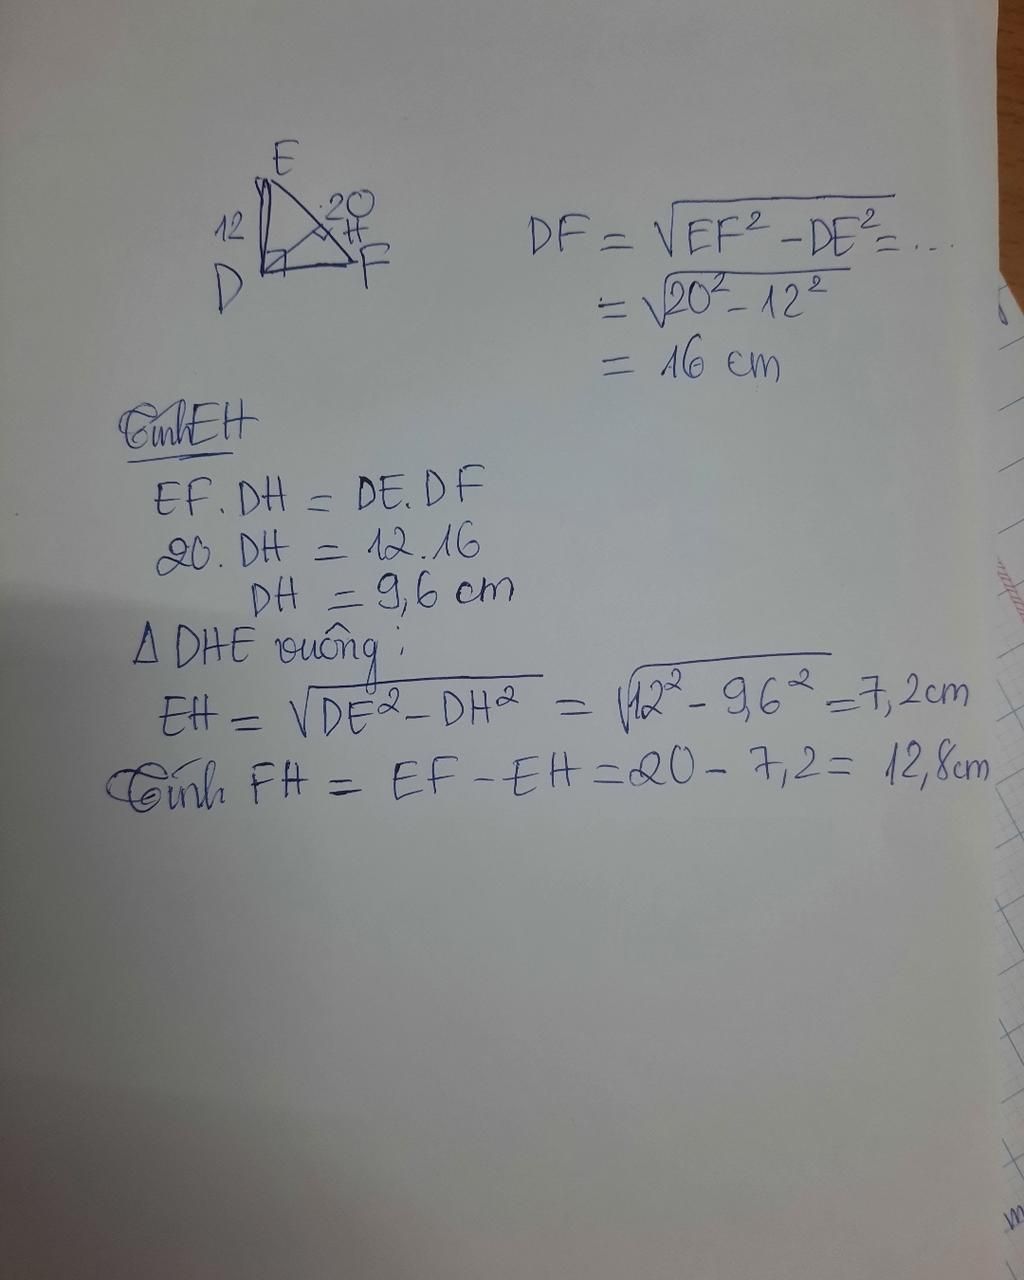 E
12
20
H
D
F
DF = √EF² - DE² = ...
= √20² - 12²
= 16 cm
Tính EH
EF. DH = DE. DF
20. DH = 12. 16
DH = 9,6 cm
Δ DHE vuông :
EH = √DE² - DH² = √12² - 9,6² = 7,2cm
Tính FH = EF - EH = 20 - 7,2 = 12,8cm